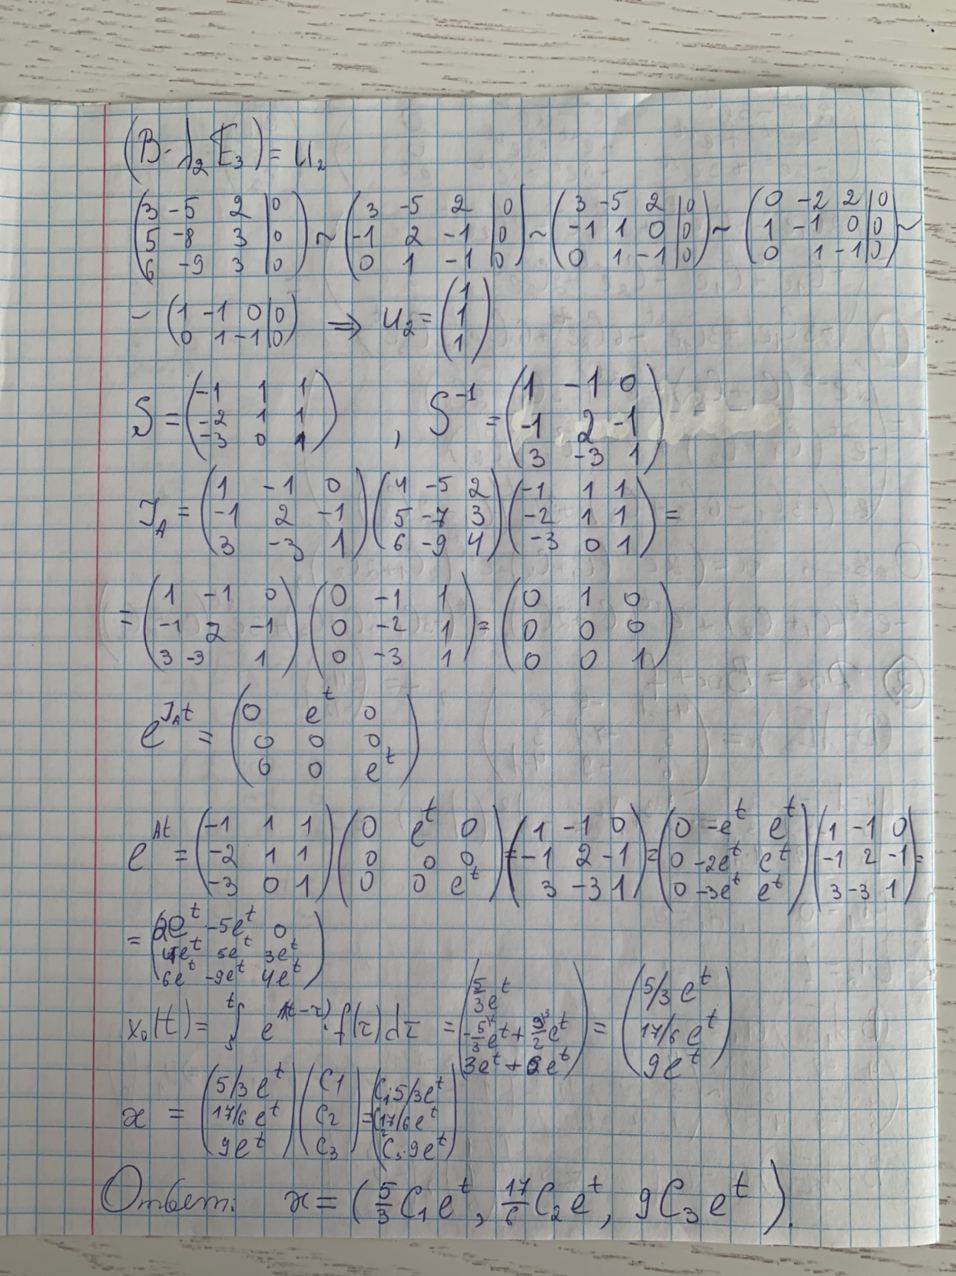 (B-λ₂E₃) = u₂
(3 -5 2 | 0; 5 -8 3 | 0; 6 -9 3 | 0) ~ (3 -5 2 | 0; -1 2 -1 | 0; 0 1 -1 | 0) ~ (3 -5 2 | 0; -1 1 0 | 0; 0 1 -1 | 0) ~ (0 -2 2 | 0; 1 -1 0 | 0; 0 1 -1 | 0) ~
~ (1 -1 0 | 0; 0 1 -1 | 0) ⇒ u₂ = (1; 1; 1)
S = (-1 1 1; -2 1 1; -3 0 1) , S⁻¹ = (1 -1 0; -1 2 -1; 3 -3 1)
J_A = (1 -1 0; -1 2 -1; 3 -3 1) (4 -5 2; 5 -7 3; 6 -9 4) (-1 1 1; -2 1 1; -3 0 1) =
= (1 -1 0; -1 2 -1; 3 -3 1) (0 -1 1; 0 -2 1; 0 -3 1) = (0 1 0; 0 0 0; 0 0 1)
e^{J_A t} = (0 e^t 0; 0 0 0; 0 0 e^t)
e^{At} = (-1 1 1; -2 1 1; -3 0 1) (0 e^t 0; 0 0 0; 0 0 e^t) = (1 -1 0; -1 2 -1; 3 -3 1) = (0 -e^t e^t; 0 -2e^t e^t; 0 -3e^t e^t) (1 -1 0; -1 2 -1; 3 -3 1) =
= (2e^t -5e^t 0; e^t 5e^t 3e^t; 6e^t -9e^t 4e^t)
x₀(t) = ∫ e^{A(t-τ)} · f(τ)dτ = (5/3 e^t; -5/3 e^t + 9/2 e^t; 3e^t + 6e^t) = (5/3 e^t; 17/6 e^t; 9e^t)
x = (5/3 e^t; 17/6 e^t; 9e^t) (C1; C2; C3) = (C₁·5/3e^t; C₂17/6e^t; C₃·9e^t)
Ответ: x = (5/3 C₁e^t, 17/6 C₂e^t, 9C₃e^t).